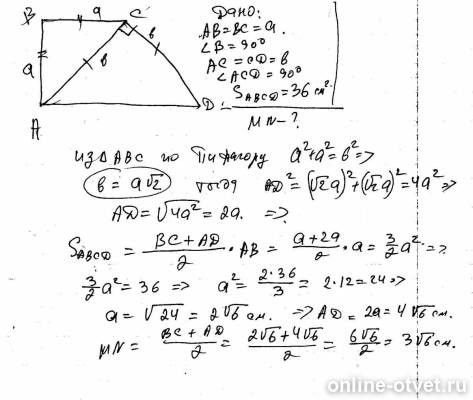 B a C
a b b
A D
Дано:
AB=BC=a.
∠B=90°
AC=CD=b
∠ACD=90°
S_ABCD=36 см²
MN-?
Из ΔABC по Пифагору a²+a²=b²=>
b=a√2 тогда AD²=(√2a)²+(√2a)²=4a²=>
AD=√4a²=2a. =>
S_ABCD = (BC+AD)/2 · AB = (a+2a)/2 · a = 3/2 a² =>
3/2 a² = 36 => a² = (2·36)/3 = 2·12=24 =>
a = √24 = 2√6 см. => AD = 2a = 4√6 см.
MN = (BC+AD)/2 = (2√6+4√6)/2 = 6√6/2 = 3√6 см.
online-otvet.ru